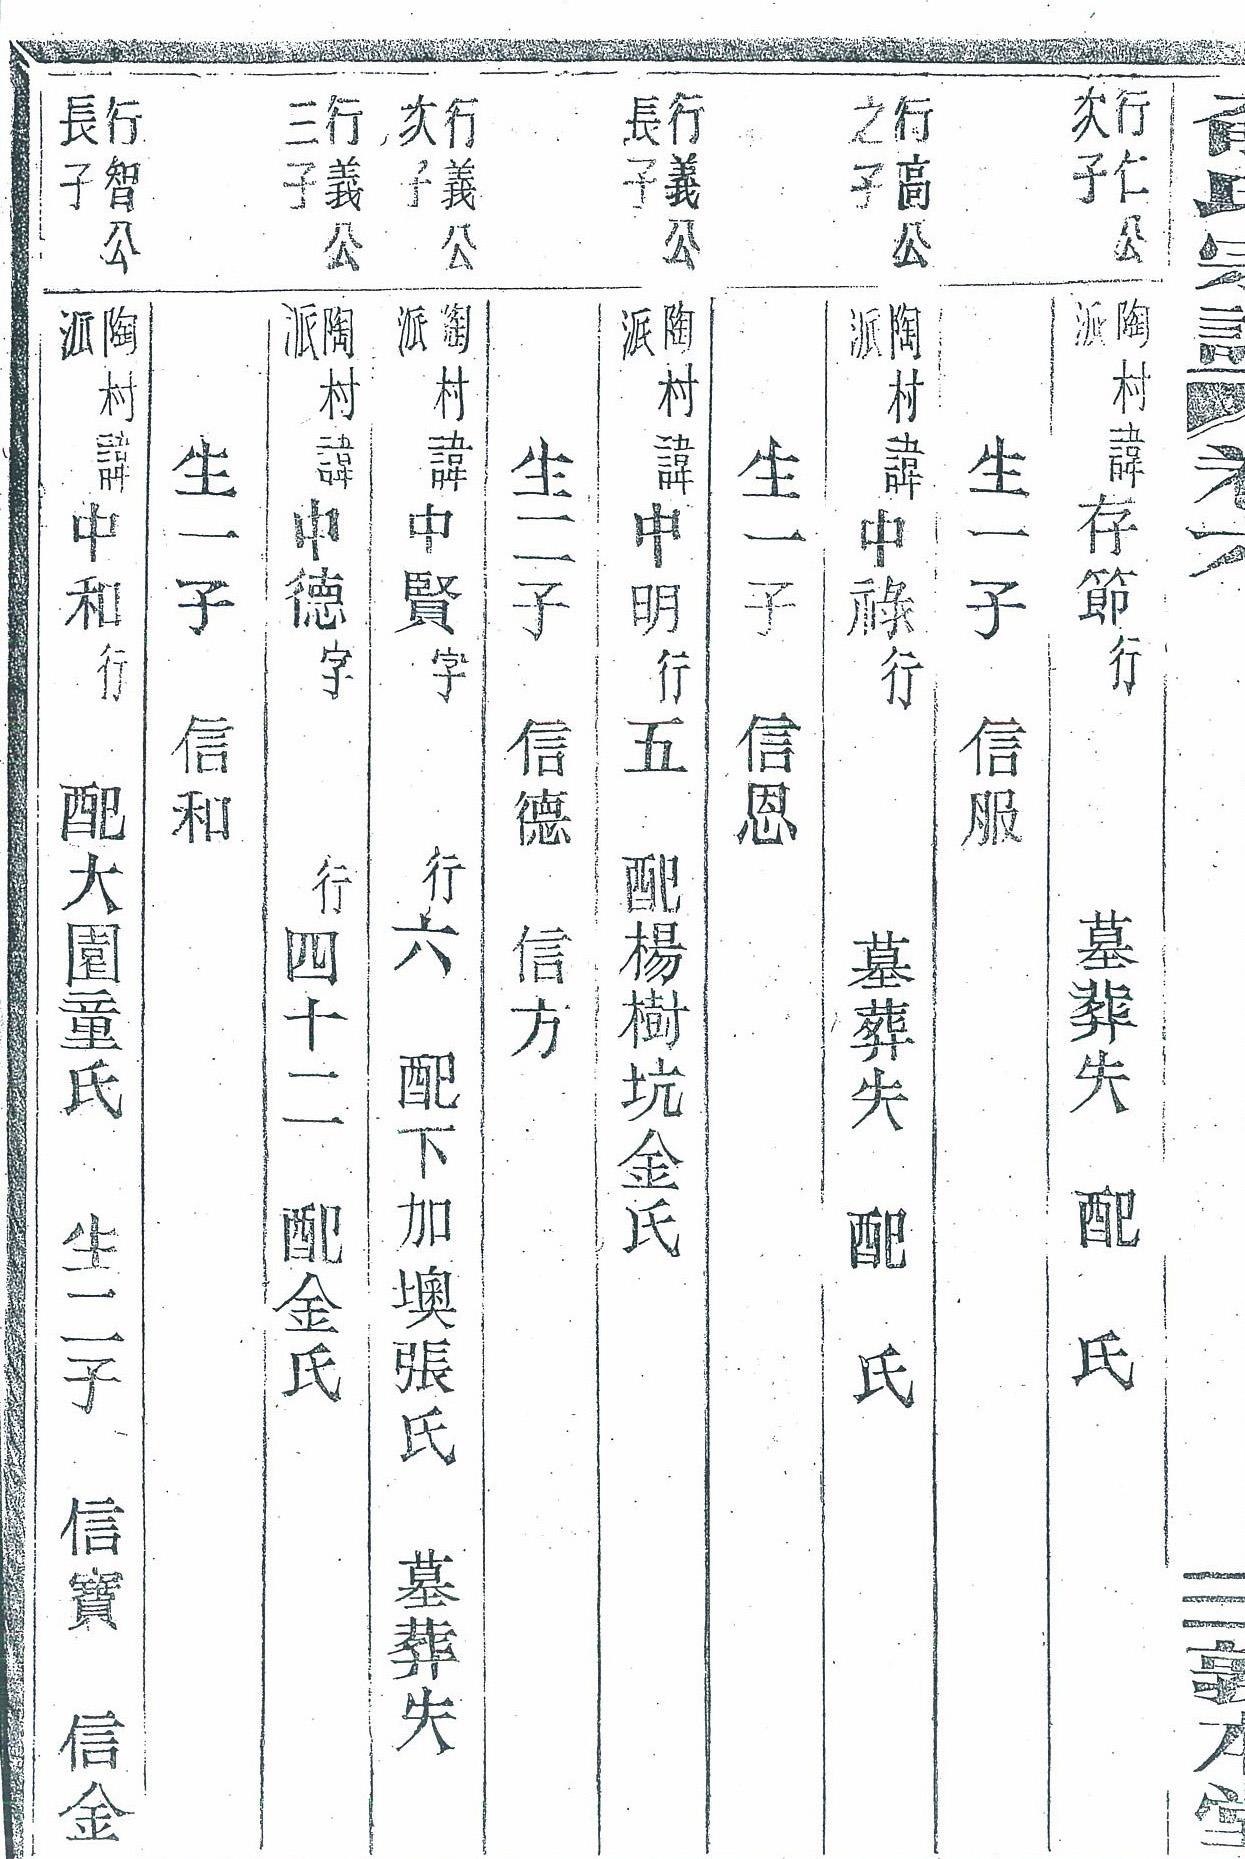 氏宗譜 卷六
三 義本堂
行仁公次子
陶村派 諱存節行 墓葬失 配 氏
生一子 信服
行高公之子
陶村派 諱中祿行 墓葬失 配 氏
生一子 信恩
行義公長子
陶村派 諱中明行五 配楊樹坑金氏
生二子 信德 信方
行義公次子
陶村派 諱中賢字 行六 配下加墺張氏 墓葬失
行義公三子
陶村派 諱中德字 行四十二 配金氏
生一子 信和
行智公長子
陶村派 諱中和行 配大園童氏 生二子 信寶 信金